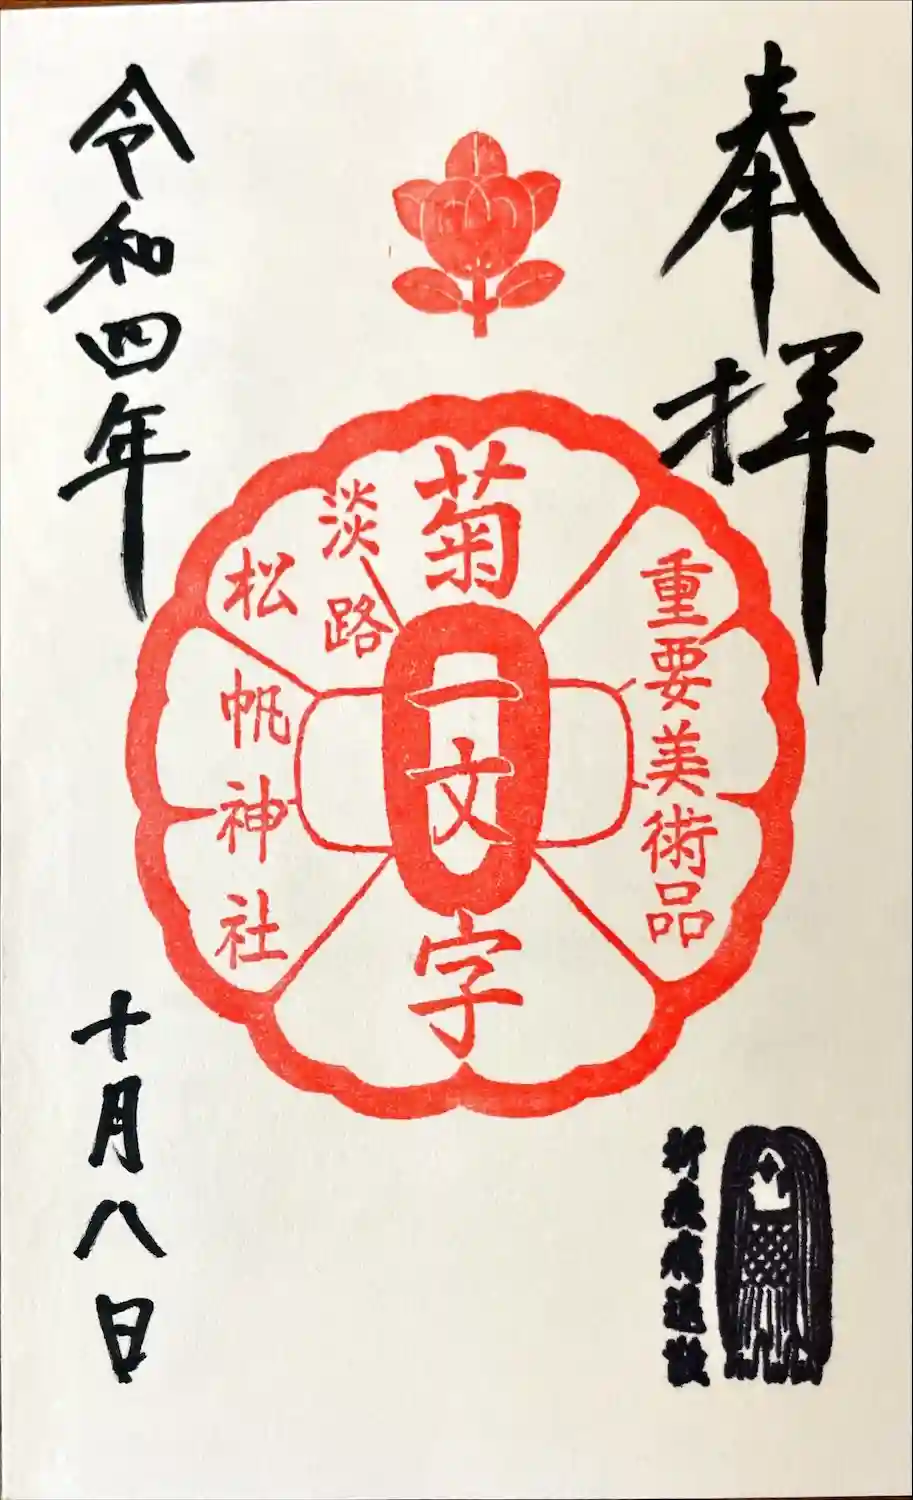 奉拝
重要美術品
菊一文字
淡路
松帆神社
令和四年
十月八日
祈疫病退散